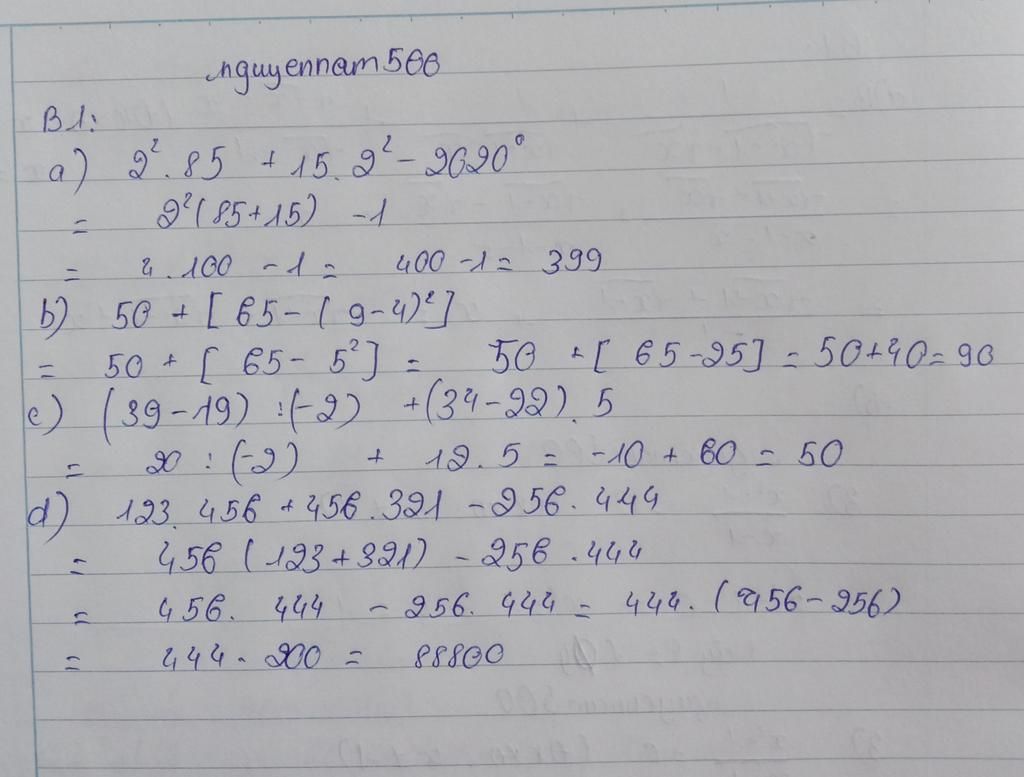 nguyennam500
B1:
a) 2².85 + 15.2² - 2020⁰
= 2²(85+15) -1
= 4.100 -1 = 400 -1 = 399
b) 50 + [ 65 - ( 9-4)²]
= 50 + [ 65 - 5²] = 50 + [ 65 - 25] = 50+40 = 90
c) (39-19) :(-2) +(34-22). 5
= 20 : (-2) + 12.5 = -10 + 60 = 50
d) 123. 456 + 456.321 - 256. 444
= 456 (123+321) - 256 .444
= 456. 444 - 256. 444 = 444. (456-256)
= 444. 200 = 88800